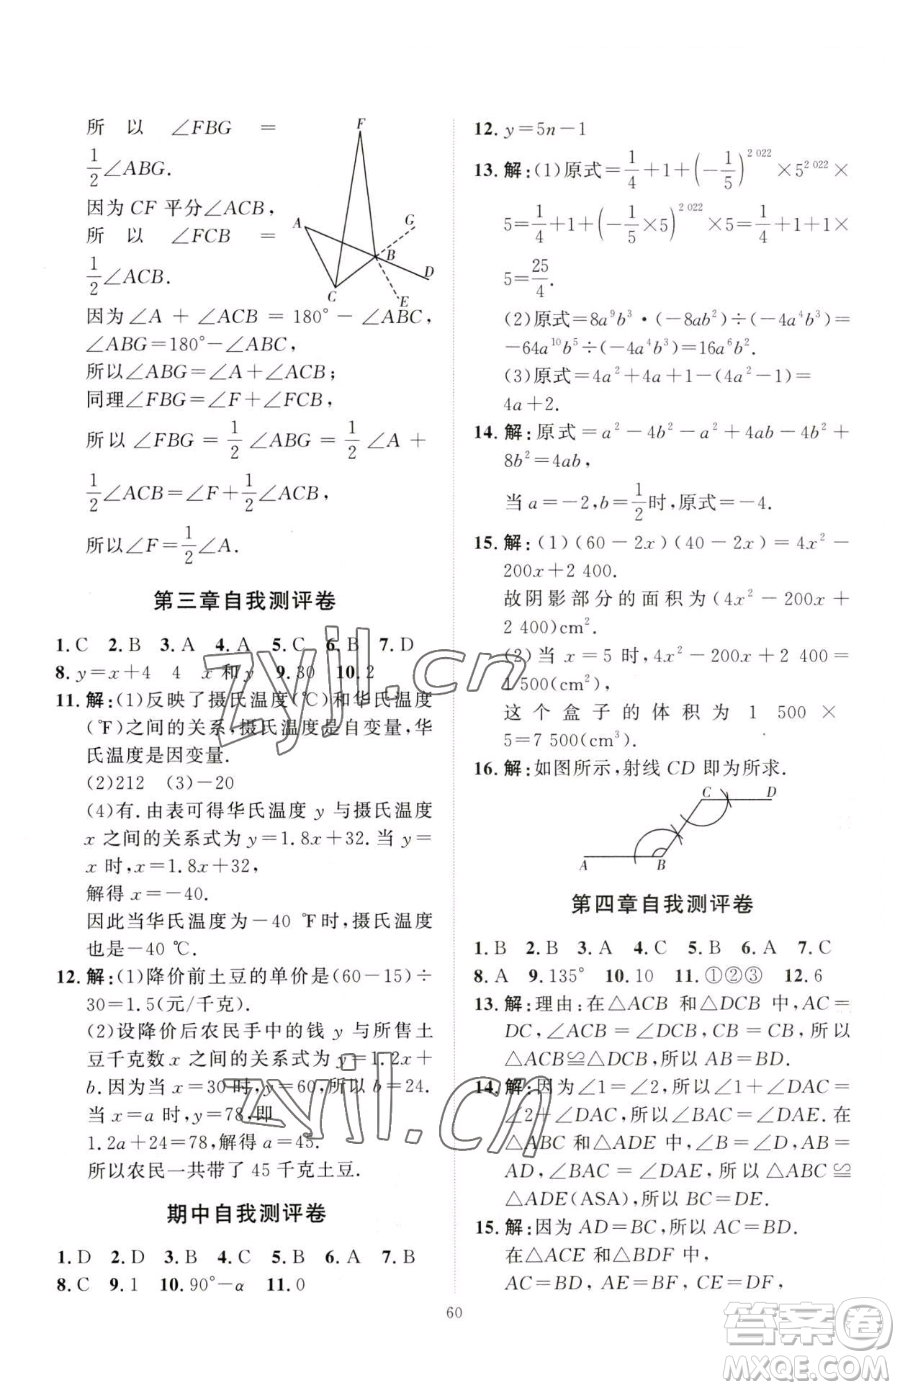 所以∠FBG=
1/2∠ABG.
因为CF平分∠ACB,
所以∠FCB=
1/2∠ACB.
因为∠A+∠ACB=180°-∠ABC,
∠ABG=180°-∠ABC,
所以∠ABG=∠A+∠ACB;
同理∠FBG=∠F+∠FCB,
所以∠FBG=1/2∠ABG=1/2∠A+
1/2∠ACB=∠F+1/2∠ACB,
所以∠F=1/2∠A.
F
A
G
B
D
C
E
第三章自我测评卷
1.C 2.B 3.A 4.A 5.C 6.B 7.D
8.y=x+4 4 x和y 9.30 10.2
11.解:(1)反映了摄氏温度(℃)和华氏温度
(℉)之间的关系,摄氏温度是自变量,华
氏温度是因变量.
(2)212 (3)-20
(4)有.由表可得华氏温度 y 与摄氏温度
x 之间的关系式为 y=1.8x+32.当 y=
x 时,x=1.8x+32,
解得 x=-40.
因此当华氏温度为-40 ℉时,摄氏温度
也是-40 ℃.
12.解:(1)降价前土豆的单价是(60-15)÷
30=1.5(元/千克).
(2)设降价后农民手中的钱 y 与所售土
豆千克数 x 之间的关系式为 y=1.2x+
b.因为 x=30 时,y=60,所以 b=24.
当 x=a 时,y=78,即
1.2a+24=78,解得 a=45.
所以农民一共带了 45 千克土豆.
期中自我测评卷
1.D 2.D 3.B 4.C 5.B 6.A 7.B
8.C 9.1 10.90°-α 11.0
12.y=5n-1
13.解:(1)原式=1/4+1+(-1/5)^2 022×5^2 022×
5=1/4+1+(-1/5×5)^2 022×5=1/4+1+1×
5=25/4.
(2)原式=8a⁹b³·(-8ab²)÷(-4a⁴b³)=
-64a¹⁰b⁵÷(-4a⁴b³)=16a⁶b².
(3)原式=4a²+4a+1-(4a²-1)=
4a+2.
14.解:原式=a²-4b²-a²+4ab-4b²+
8b²=4ab,
当 a=-2,b=1/2时,原式=-4.
15.解:(1)(60-2x)(40-2x)=4x²-
200x+2 400.
故阴影部分的面积为(4x²-200x+
2 400)cm².
(2)当 x=5 时,4x²-200x+2 400=
1 500(cm²).
这个盒子的体积为 1 500×
5=7 500(cm³).
16.解:如图所示,射线 CD 即为所求.
C
D
A
B
第四章自我测评卷
1.B 2.B 3.A 4.C 5.B 6.A 7.C
8.A 9.135° 10.10 11.①②③ 12.6
13.解:理由:在△ACB 和△DCB 中,AC=
DC,∠ACB=∠DCB,CB=CB,所以
△ACB≌△DCB,所以 AB=BD.
14.解:因为∠1=∠2,所以∠1+∠DAC=
∠2+∠DAC,所以∠BAC=∠DAE.在
△ABC 和△ADE 中,∠B=∠D,AB=
AD,∠BAC=∠DAE,所以△ABC≌
△ADE(ASA),所以 BC=DE.
15.解:因为 AD=BC,所以 AC=BD.
在△ACE 和△BDF 中,
AC=BD,AE=BF,CE=DF,
60
zyjl.cn
zyjl.cn
答案圈
MXQE.COM